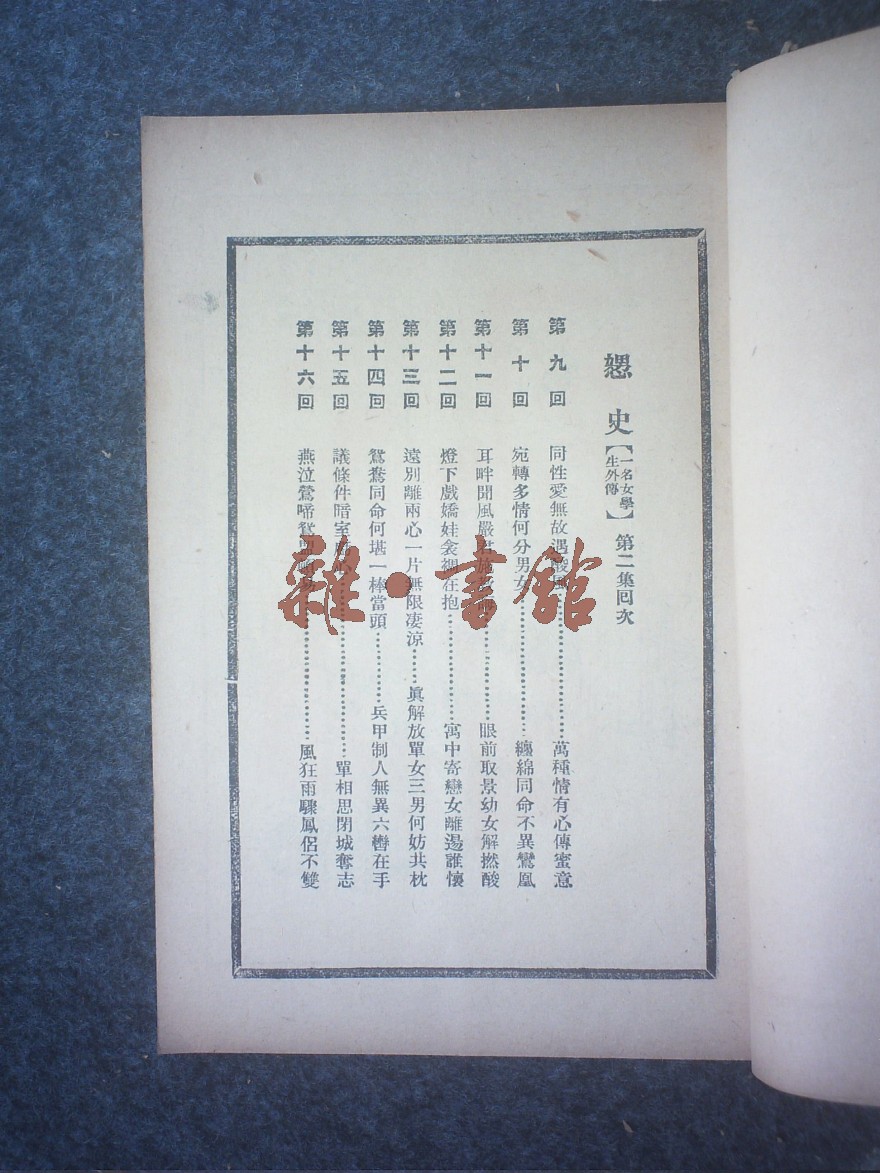 史【一名女學生外傳】 第二集回次
第九回 同性愛無故遇……萬種情有心傳蜜意
第十回 宛轉多情何分男女……纏綿同命不異鸞凰
第十一回 耳畔聞風嚴……眼前取景幼女解撚酸
第十二回 燈下戲嬌娃衾裯在抱……寓中寄戀女離湯誰懷
第十三回 遠別離兩心一片無限凄涼……眞解放單女三男何妨共枕
第十四回 鴛鴦同命何堪一棒當頭……兵甲制人無異六轡在手
第十五回 議條件暗室……單相思閉城奪志
第十六回 燕泣鶯啼鴛盟……風狂雨驟鳳侶不雙
雜·書館